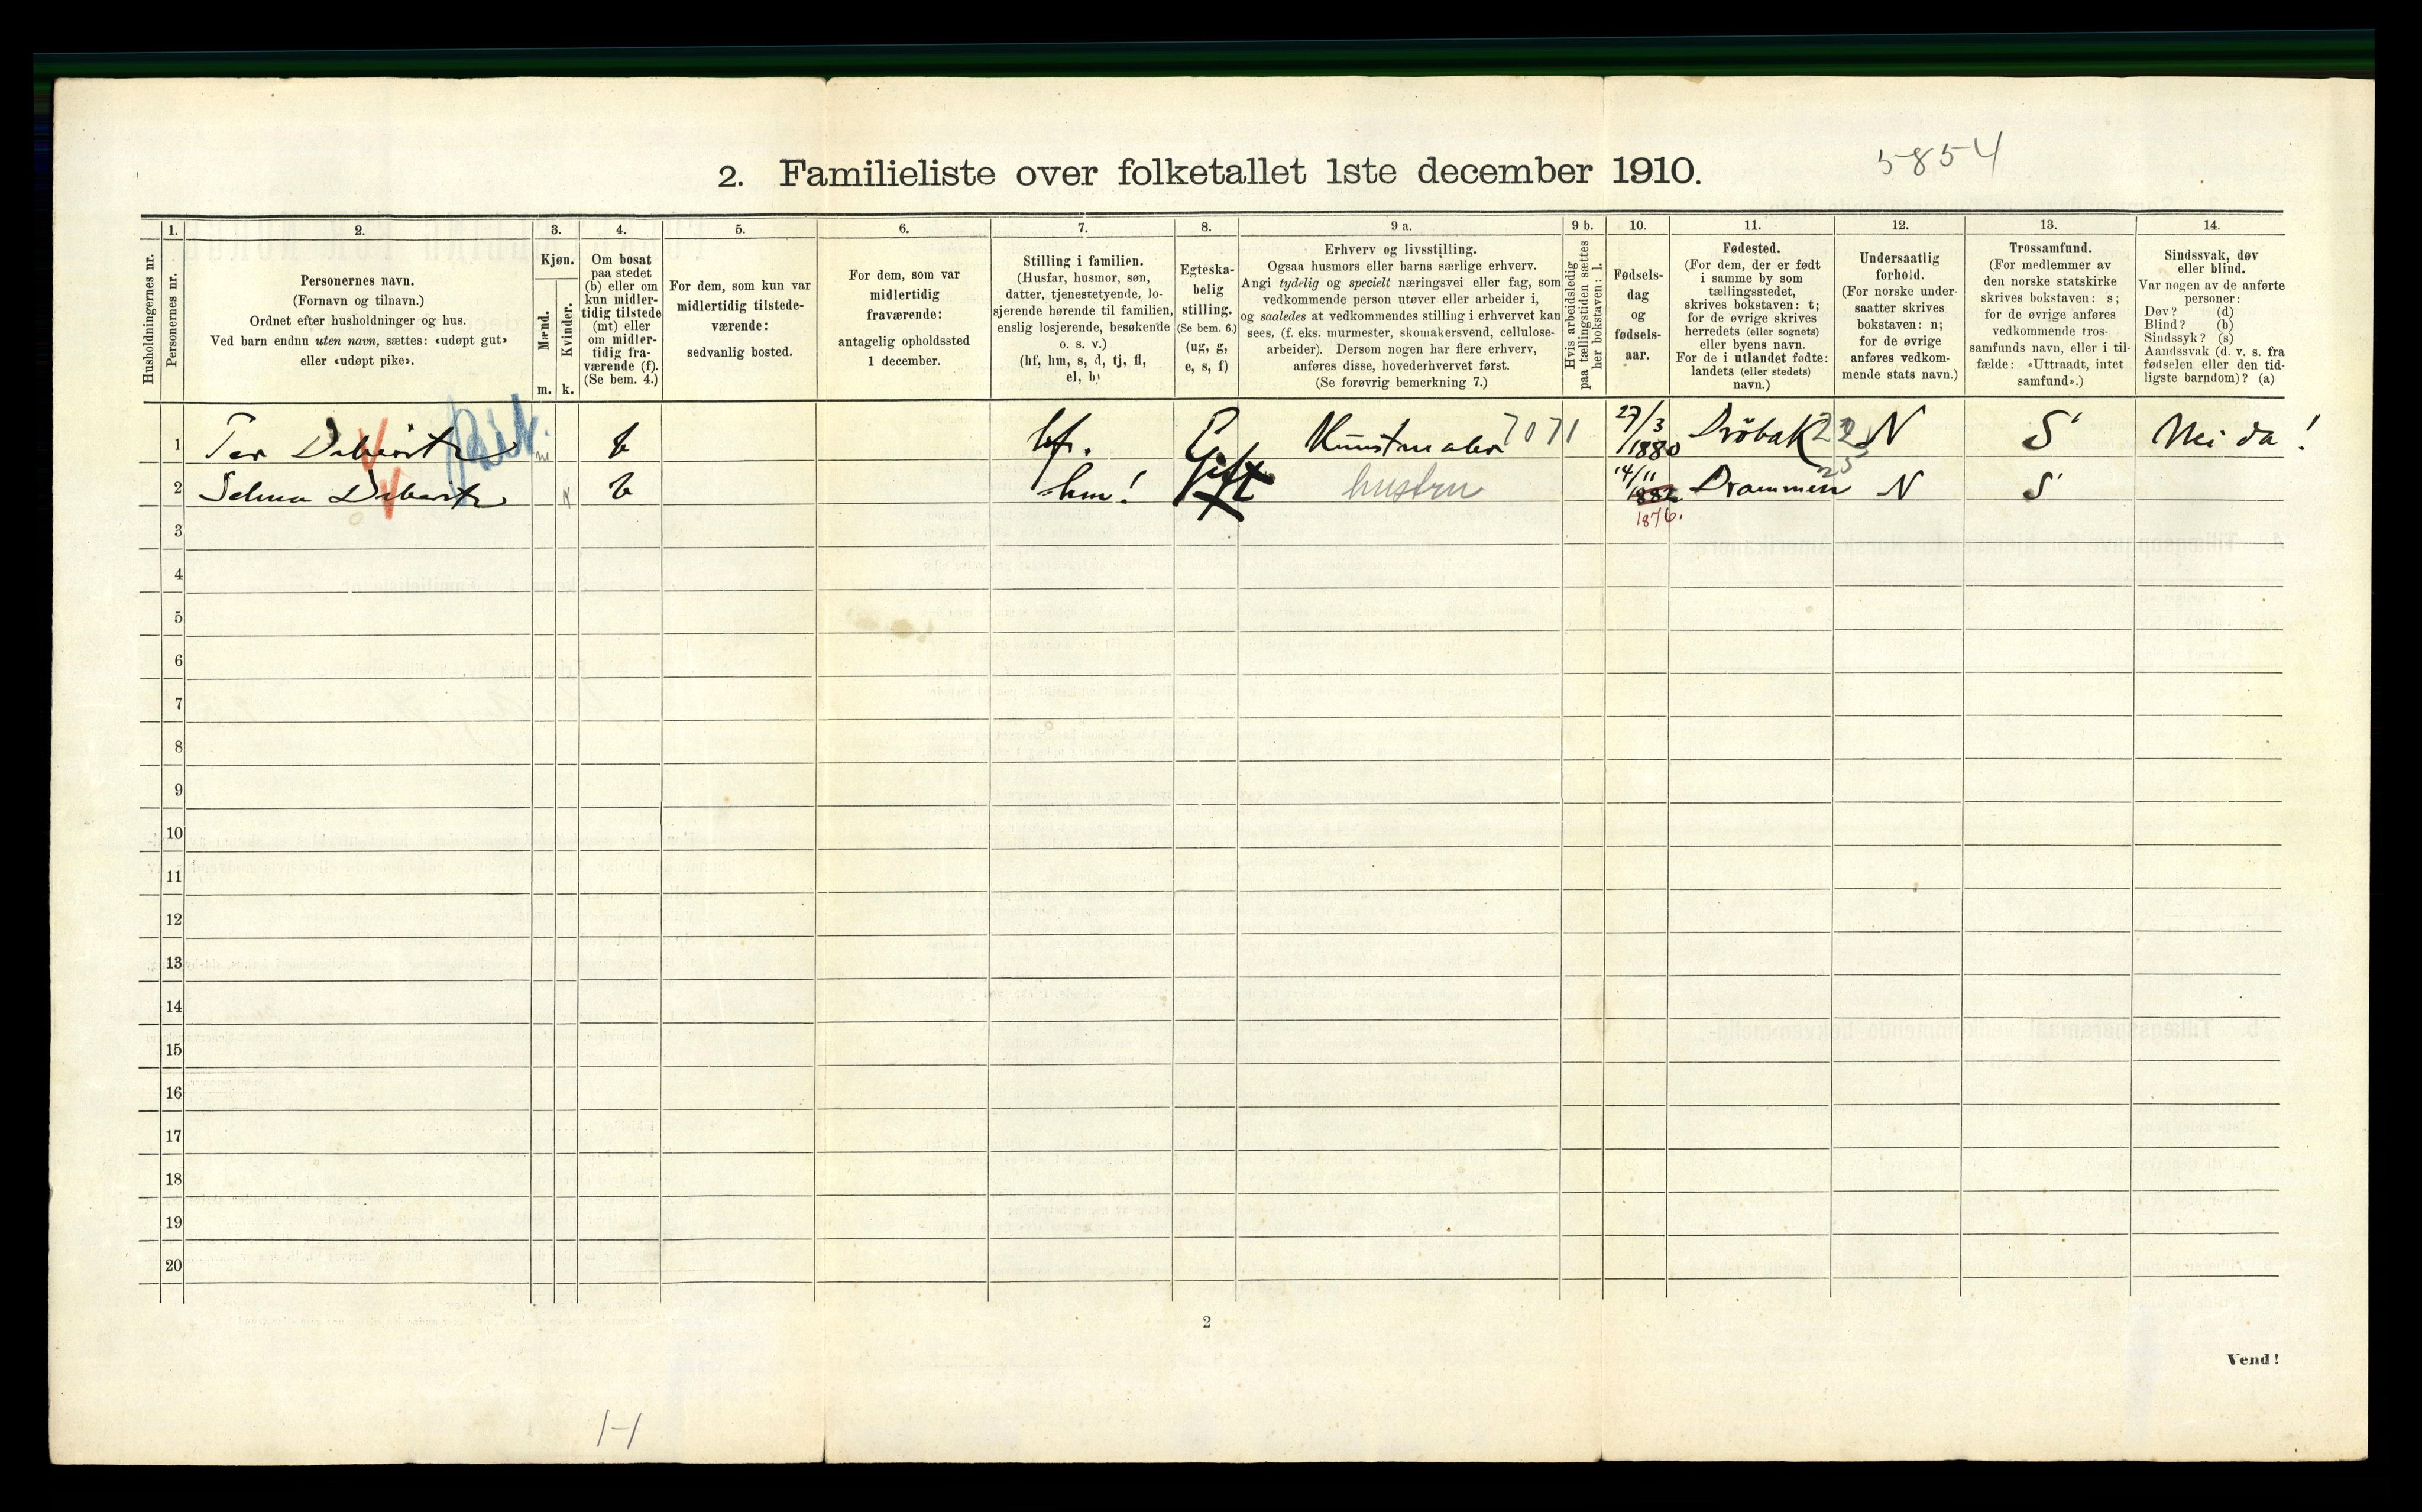 5854
2. Familieliste over folketallet 1ste december 1910.
1. 2. 3. 4. 5. 6. 7. 8. 9 a. 9 b. 10. 11. 12. 13. 14.
Husholdningernes nr.
Personernes nr.
Personernes navn.
(Fornavn og tilnavn.)
Ordnet efter husholdninger og hus.
Ved barn endnu uten navn, sættes: «udøpt gut»
eller «udøpt pike».
Kjøn.
Mænd.
Kvinder.
m. k.
Om bosat
paa stedet
(b) eller om
kun midler-
tidig tilstede
(mt) eller
om midler-
tidig fra-
værende (f).
(Se bem. 4.)
For dem, som kun var
midlertidig tilstede-
værende:
sedvanlig bosted.
For dem, som var
midlertidig
fraværende:
antagelig opholdssted
1 december.
Stilling i familien.
(Husfar, husmor, søn,
datter, tjenestetyende, lo-
sjerende hørende til familien,
enslig losjerende, besøkende
o. s. v.)
(hf, hm, s, d, tj, fl,
el, b)
Egteska-
belig
stilling.
(Se bem. 6.)
(ug, g,
e, s, f)
Erhverv og livsstilling.
Ogsaa husmors eller barns særlige erhverv.
Angi tydelig og specielt næringsvei eller fag, som
vedkommende person utøver eller arbeider i,
og saaledes at vedkommendes stilling i erhvervet kan
sees, (f. eks. murmester, skomakersvend, cellulose-
arbeider). Dersom nogen har flere erhverv,
anføres disse, hovederhvervet først.
(Se forøvrig bemerkning 7.)
Hvis arbeidsledig
paa tællingstiden sættes
her bokstaven: l.
Fødsels-
dag
og
fødsels-
aar.
Fødested.
(For dem, der er født
i samme by som
tællingsstedet,
skrives bokstaven: t;
for de øvrige skrives
herredets (eller sognets)
eller byens navn.
For de i utlandet fødte:
landets (eller stedets)
navn.)
Undersaatlig
forhold.
(For norske under-
saatter skrives
bokstaven: n;
for de øvrige
anføres vedkom-
mende stats navn.)
Trossamfund.
(For medlemmer av
den norske statskirke
skrives bokstaven: s;
for de øvrige anføres
vedkommende tros-
samfunds navn, eller i til-
fælde: «Uttraadt, intet
samfund».)
Sindssvak, døv
eller blind.
Var nogen av de anførte
personer:
Døv? (d)
Blind? (b)
Sindssyk? (s)
Aandssvak (d. v. s. fra
fødselen eller den tid-
ligste barndom)? (a)
1 Per Deberitz m b hf. Gift Kunstmaler 7071 27/3 1880 Dröbak 22 N S Nei da!
2 Selma Deberitz k b hm! hustru 14/11 1882 Drammen 25 N S
1876.
3
4
5
6
7
8
9
10
11
12
13
14
15
16
17
18
19
20
2
Vend!
1-1